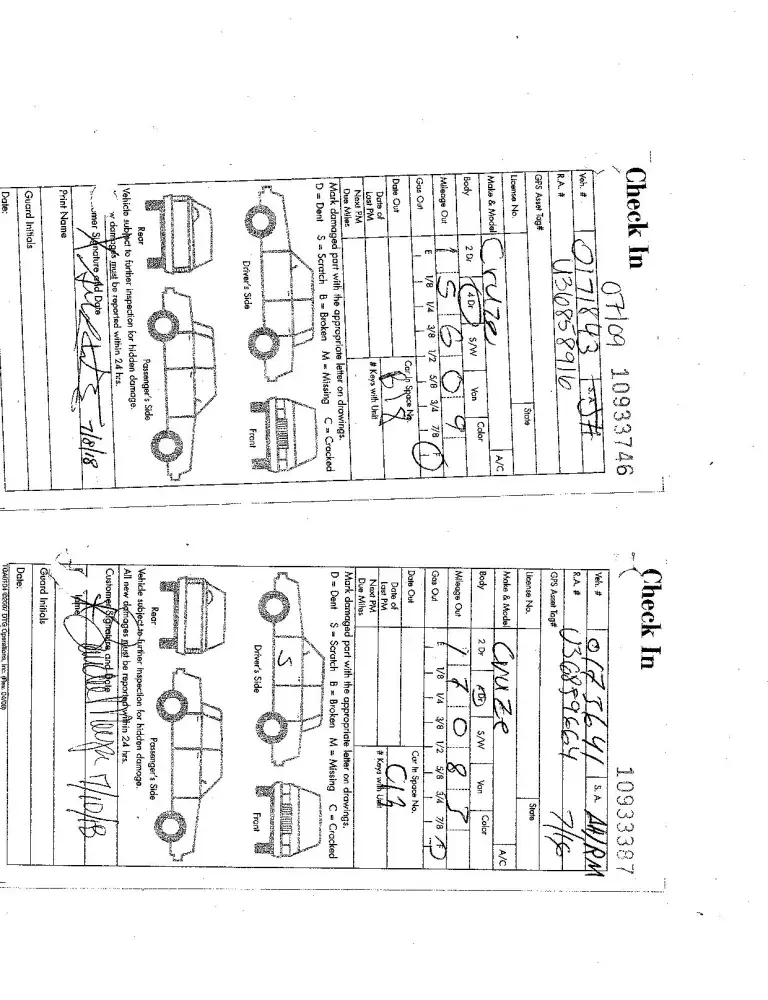 Check In
07/09 10933746
Veh. # 0171843 S.A. JH
R.A. # U36858916
GPS Asset Tag#
License No. State
Make & Model Cruze A/C
Body 2 Dr 4 Dr S/W Van Color
Mileage Out 1 5 6 0 9
Gas Out E 1/8 1/4 3/8 1/2 5/8 3/4 7/8 F
Date Out Car In Space No. B18
Date of Last PM # Keys with Unit
Next PM Due Miles
Mark damaged part with the appropriate letter on drawings.
D = Dent S = Scratch B = Broken M = Missing C = Cracked
Driver's Side Front
Rear Passenger's Side
Vehicle subject to further inspection for hidden damage.
w damages must be reported within 24 hrs.
mer Signature and Date 7/8/18
Print Name
Guard Initials
Date:
Check In
10933387
Veh. # 0173641 S.A. AH/RM
R.A. # U36859664 7/10
GPS Asset Tag#
License No. State
Make & Model Cruze A/C
Body 2 Dr 4 Dr S/W Van Color
Mileage Out 1 7 0 8 3
Gas Out E 1/8 1/4 3/8 1/2 5/8 3/4 7/8 F
Date Out Car In Space No. C13
Date of Last PM # Keys with Unit
Next PM Due Miles
Mark damaged part with the appropriate letter on drawings.
D = Dent S = Scratch B = Broken M = Missing C = Cracked
S
Driver's Side Front
Rear Passenger's Side
Vehicle subject to further inspection for hidden damage.
All new damages must be reported within 24 hrs.
Customer Signature and Date 7/10/18
Guard Initials
Date:
DTG Operations, Inc.